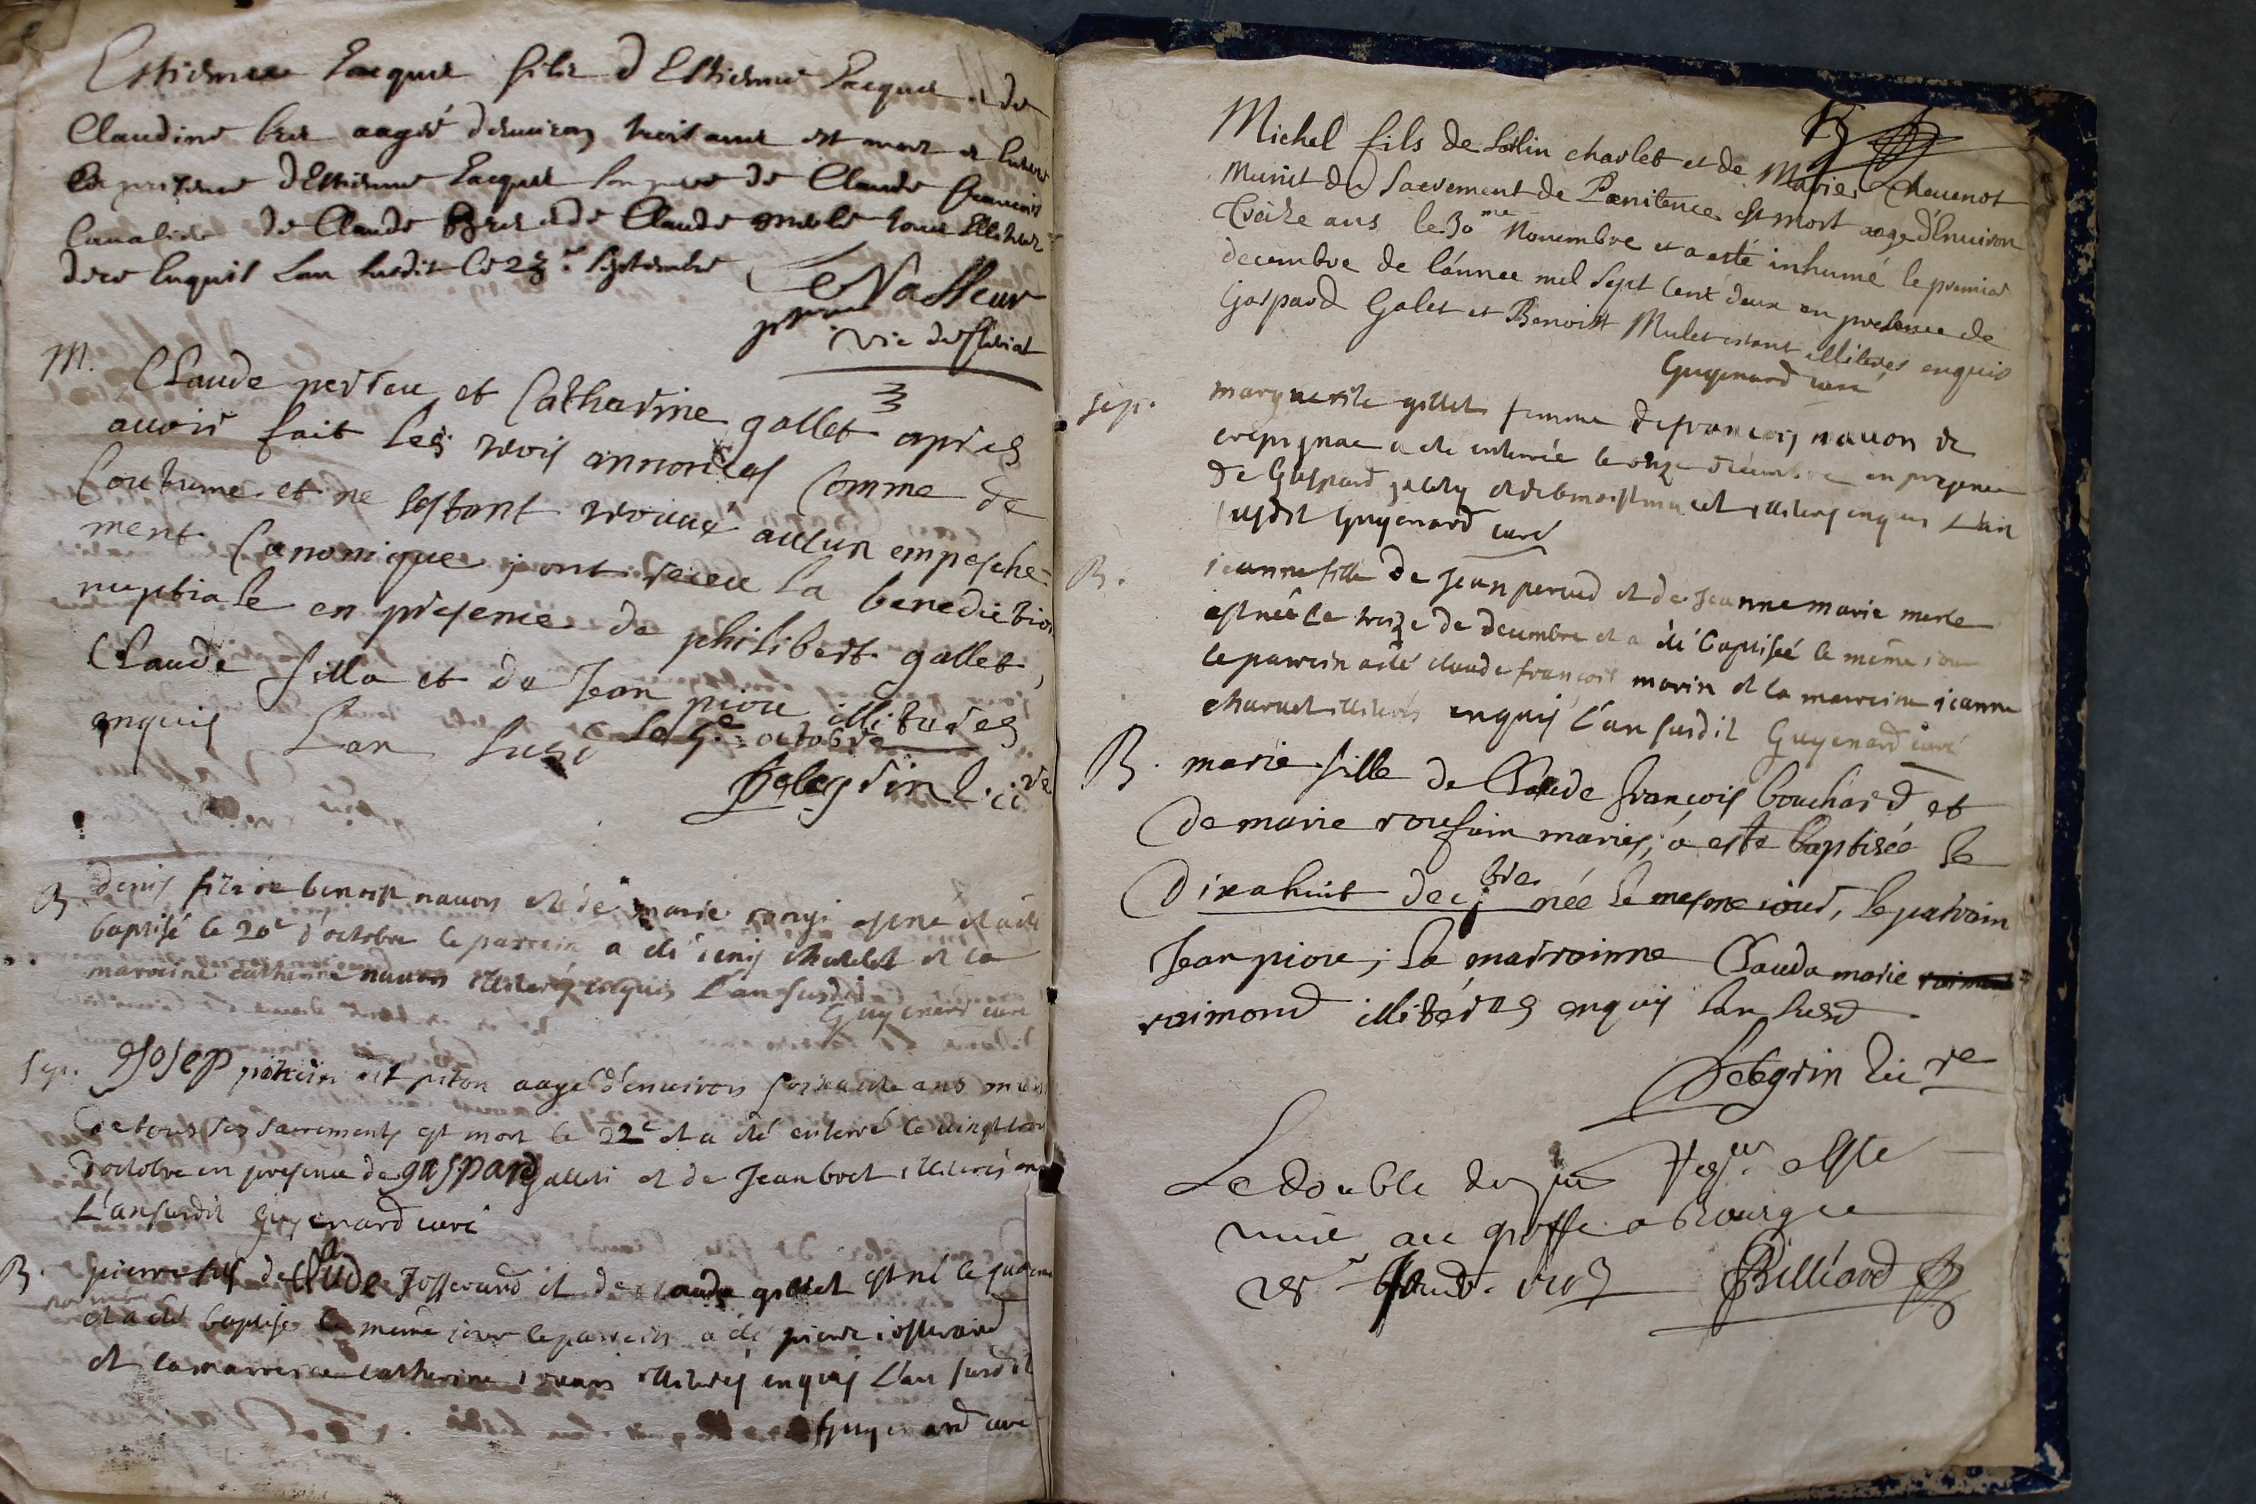 Estienne Jacquet fils d Estienne Jacquet et de
Claudine aagé denviron trois ans est mort et enterré
en presence dEstienne Jacquet son pere de Claude francois
de Claude et de Claude merle tous illiteres
de ce enquis Lan susdit le 23e septembre
LeVasseur
vic de
M. Claude perreu et Catharine gallet apres
avoir fait les trois annonces comme de
Coutume et ne sestant trouvé aucun empesche-
ment Canonique, ont receu la benediction
nuptiale en presence de philibert gallet,
Claude filla et de Jean pioru illiteres
enquis Lan susd le 5e octobre
Pelegrin
B. denis fils de benoist navon et de marie né et a été
baptisé le 20e d'octobre le parrein a eté denis et la
marreine catherine navon illiterés enquis L'an susdit
Guyenard curé
sep. Josep dit piton aagé d'environ soixante ans muni
de tous ses sacrements est mort le 22e et a eté enterré le vingt trois
d'octobre en presence de gaspard gallet et de Jean illiterés enq
L'an susdit Guyenard curé
B. pierre fils de Claude Josserand et de Claude gillet est né le
novembre
et a eté baptisé le même jour le parrein a eté pierre josserand
et la marreine catherine illiterés enquis L'an susdit
Guyenard curé
15
Michel fils de charlet et de Marie Chavenot
Munit du Sacrement de Pænitence est mort aagé d'Environ
treize ans le 30me Novembre et a esté inhumé le premier
decembre de l'année mil sept cent deux en presence de
Gaspard Galet et Benoist Mulet estant illiteres enquis
Guyenard curé
sep. marguerite gillet femme de francois navon de
crepignac a eté enterrée le onze decembre en presence
de Gaspard galley et de benoist mulet illiterés enquis L'an
susdit Guyenard curé
B. jeanne fille de Jean perud et de Jeanne marie merle
est née le treize de decembre et a eté baptisée le même jour
le parrein a eté claude françois morin et la marreine jeanne
charvet illiterés enquis L'an susdit Guyenard curé
B. marie fille de Claude françois bouchard et
de marie rousain mariés, a esté baptisée le
dix a huit decbre née le mesme jour, le parrain
Jean piore, la marrainne Clauda marie
raimond illiteres enquis lan susd
Pelegrin
Le double du este
mis au greffe a Bourg ce
1703 Billiard